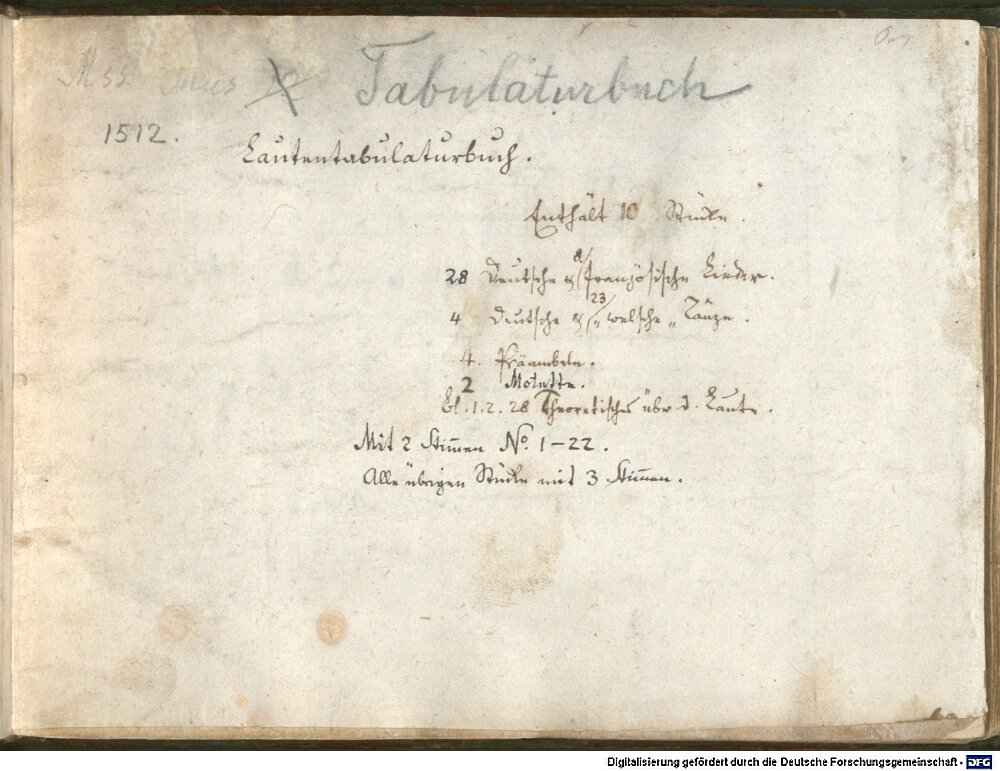 Mss. mus
Tabulaturbuch
1512.
Lautentabulaturbuch.
Enthält 10 Stücke.
28 Deutsche & 8/ französische Lieder.
4 Deutsche & 23/ „welsche„ Tänze.
4. Präambeln.
2 Motette.
Bl. 1. 2. 28 Theoretisches über d. Laute.
Mit 2 Stim̅en No. 1–22.
Alle übrigen Stücke mit 3 Stim̅en.
Digitalisierung gefördert durch die Deutsche Forschungsgemeinschaft - DFG